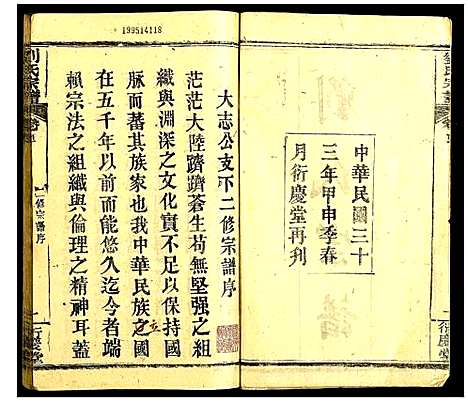 199514118
劉氏宗譜
中華民國三十
三年甲申季春
月衍慶堂再刋
衍慶堂
大志公支下二修宗譜序
茫茫大陸躋躋蒼生苟無堅强之組
織與淵深之文化實不足以保持國
脉而蕃其族家也我中華民族之國立
在五千年以前而能悠久迄今者端
賴宗法之組織與倫理之精神耳蓋
劉氏宗譜
二修宗譜序
衍慶堂